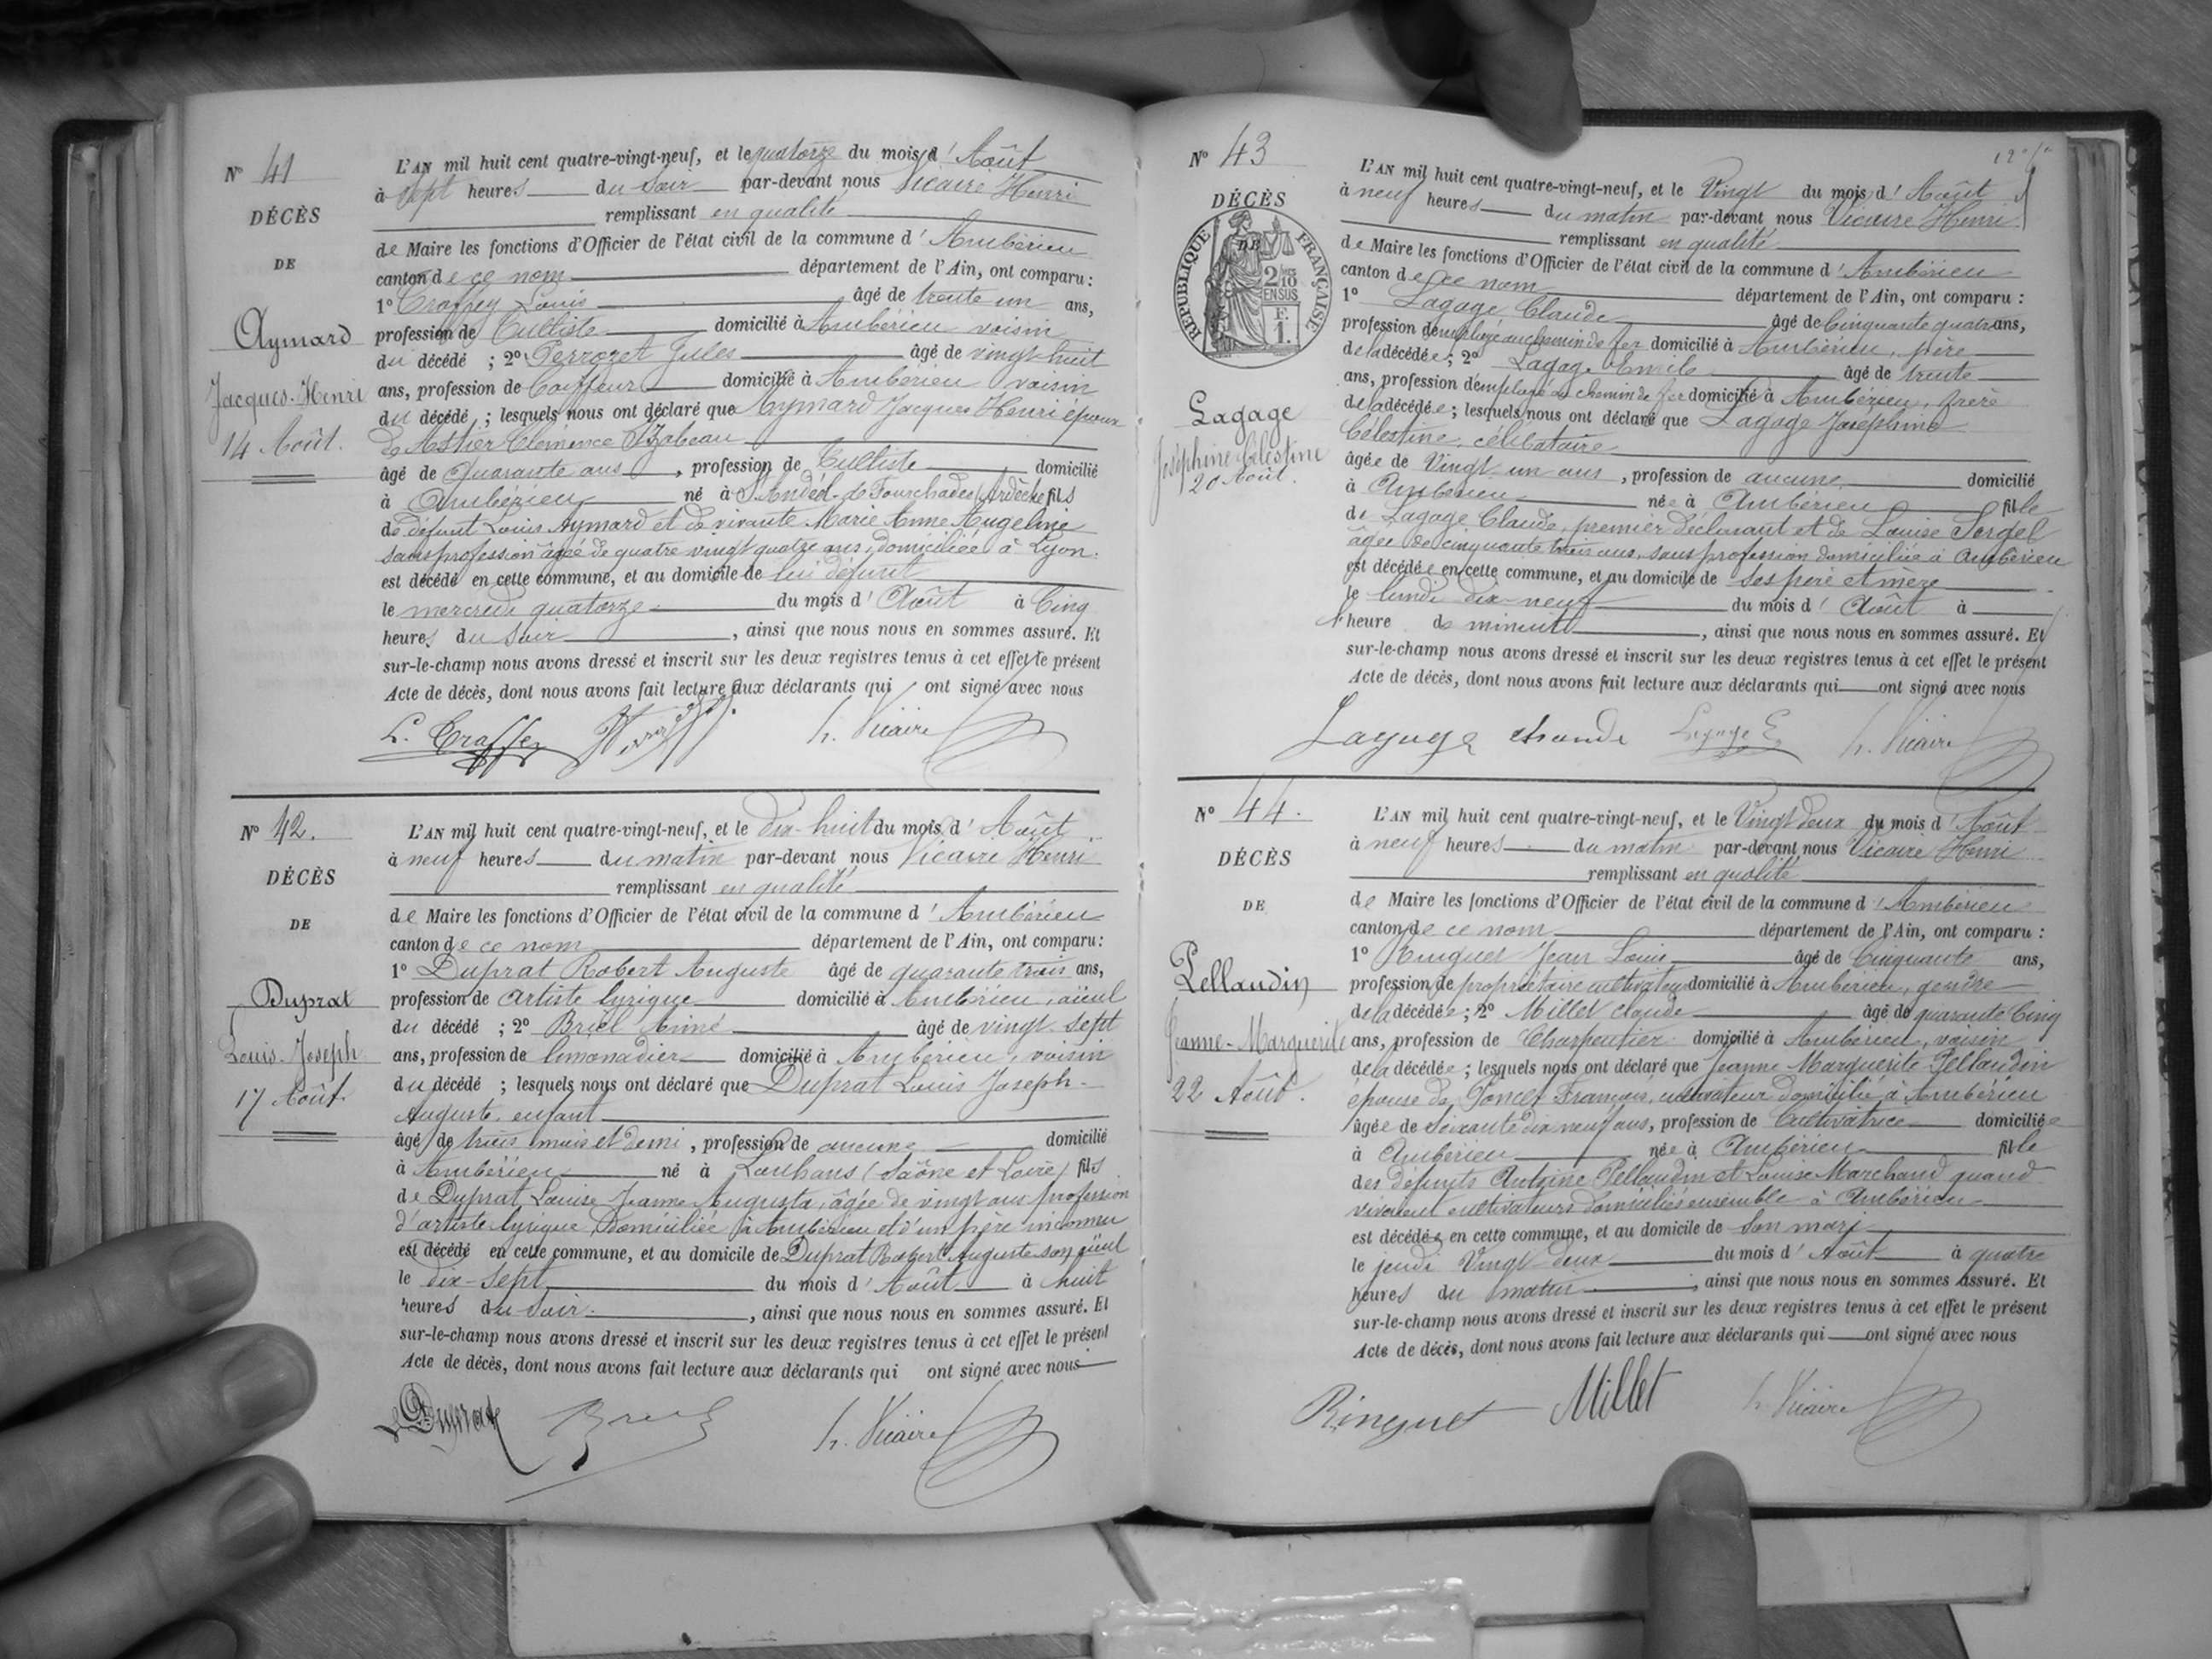 N° 41
DÉCÈS
DE
Aymard
Jacques-Henri
14 Août.
L'AN mil huit cent quatre-vingt-neuf, et le quatorze du mois d' Août
à sept heures du soir par-devant nous Vicaire Henri
remplissant en qualité
de Maire les fonctions d'Officier de l'état civil de la commune d' Ambérieu
canton de ce nom département de l'Ain, ont comparu :
1° Louis âgé de trente un ans,
profession de Tulliste domicilié à Ambérieu voisin
du décédé ; 2° Perrozet Jules âgé de vingt-huit
ans, profession de Coiffeur domicilié à Ambérieu voisin
du décédé ; lesquels nous ont déclaré que Aymard Jacques Henri époux
de Astier Clémence Izabeau
âgé de Quarante ans, profession de Tulliste domicilié
à Ambérieu né à St Andéol-de-Fourchades (Ardèche) fils
de défunt Louis Aymard et de vivante Marie Anne Angeline
sans profession âgée de quatre vingt quatre ans, domiciliée à Lyon.
est décédé en cette commune, et au domicile de lui défunt
le mercredi quatorze du mois d' Août à Cinq
heures du soir, ainsi que nous nous en sommes assuré. Et
sur-le-champ nous avons dressé et inscrit sur les deux registres tenus à cet effet le présent
Acte de décès, dont nous avons fait lecture aux déclarants qui ont signé avec nous
h. Vicaire
N° 42.
DÉCÈS
DE
Duprat
Louis-Joseph
17 Août.
L'AN mil huit cent quatre-vingt-neuf, et le dix-huit du mois d' Août
à neuf heures du matin par-devant nous Vicaire Henri
remplissant en qualité
de Maire les fonctions d'Officier de l'état civil de la commune d' Ambérieu
canton de ce nom département de l'Ain, ont comparu :
1° Duprat Robert Auguste âgé de quarante trois ans,
profession de artiste lyrique domicilié à Ambérieu, aïeul
du décédé ; 2° Briel Aimé âgé de vingt-sept
ans, profession de limonadier domicilié à Ambérieu, voisin
du décédé ; lesquels nous ont déclaré que Duprat Louis Joseph-
Auguste, enfant
âgé de trois mois et demi, profession de aucune domicilié
à Ambérieu né à Louhans (Saône et Loire) fils
de Duprat Louise Jeanne Augusta, âgée de vingt ans profession
d'artiste lyrique, domiciliée à Ambérieu et d'un père inconnu
est décédé en cette commune, et au domicile de Duprat Robert Auguste son aïeul
le dix-sept du mois d' Août à huit
heures du soir, ainsi que nous nous en sommes assuré. Et
sur-le-champ nous avons dressé et inscrit sur les deux registres tenus à cet effet le présent
Acte de décès, dont nous avons fait lecture aux déclarants qui ont signé avec nous
Duprat h. Vicaire
N° 43
DÉCÈS
DE
RÉPUBLIQUE FRANÇAISE
2/10
EN SUS
F.
1.
Lagage
Joséphine Célestine
20 Août.
L'AN mil huit cent quatre-vingt-neuf, et le Vingt du mois d' Août
à neuf heures du matin par-devant nous Vicaire Henri
remplissant en qualité
de Maire les fonctions d'Officier de l'état civil de la commune d' Ambérieu
canton de ce nom département de l'Ain, ont comparu :
1° Lagage Claude âgé de Cinquante quatre ans,
profession d'employé au chemin de fer domicilié à Ambérieu, père
de la décédée ; 2° Lagage Emile âgé de trente
ans, profession d'employé de chemin de fer domicilié à Ambérieu, frère
de la décédée ; lesquels nous ont déclaré que Lagage Joséphine
Célestine, célibataire
âgée de Vingt un ans, profession de aucune domicilié
à Ambérieu née à Ambérieu fille
de Lagage Claude, premier déclarant et de Louise Sorgel
âgée de cinquante trois ans, sans profession domiciliée à Ambérieu
est décédée en cette commune, et au domicile de ses père et mère
le lundi dix-neuf du mois d' Août à
l'heure de minuit, ainsi que nous nous en sommes assuré. Et
sur-le-champ nous avons dressé et inscrit sur les deux registres tenus à cet effet le présent
Acte de décès, dont nous avons fait lecture aux déclarants qui ont signé avec nous
Lagage Lagage E h. Vicaire
N° 44.
DÉCÈS
DE
Pellaudin
Jeanne-Marguerite
22 Août.
L'AN mil huit cent quatre-vingt-neuf, et le Vingt deux du mois d' Août
à neuf heures du matin par-devant nous Vicaire Henri
remplissant en qualité
de Maire les fonctions d'Officier de l'état civil de la commune d' Ambérieu
canton de ce nom département de l'Ain, ont comparu :
1° Ringuet Jean Louis âgé de Cinquante ans,
profession de propriétaire cultivateur domicilié à Ambérieu, gendre
de la décédée ; 2° Millet Claude âgé de quarante Cinq
ans, profession de Charpentier domicilié à Ambérieu, voisin
de la décédée ; lesquels nous ont déclaré que Jeanne Marguerite Pellaudin
épouse de Poncet François, cultivateur domicilié à Ambérieu
âgée de soixante dix neuf ans, profession de Cultivatrice domiciliée
à Ambérieu née à Ambérieu fille
des défunts Antoine Pellaudin et Louise Marchand quand
vivaient cultivateurs domiciliés ensemble à Ambérieu
est décédée en cette commune, et au domicile de son mari
le jeudi Vingt deux du mois d' Août à quatre
heures du matin, ainsi que nous nous en sommes assuré. Et
sur-le-champ nous avons dressé et inscrit sur les deux registres tenus à cet effet le présent
Acte de décès, dont nous avons fait lecture aux déclarants qui ont signé avec nous
Ringuet Millet h. Vicaire